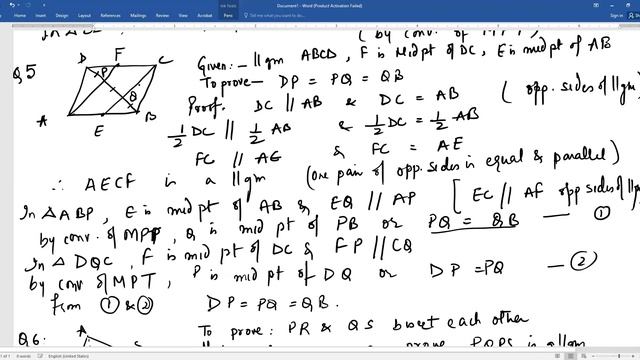 Document1 - Word (Product Activation Failed)
File
Pen
Tell me what you want to do...
Share
(by conv. of MPT)
Q5
D F C
P
Q
A E B
Given:- ||gm ABCD, F is Midpt of DC, E is mid pt of AB
To prove- DP = PQ = QB
Proof. DC || AB & DC = AB (opp. sides of ||gm)
1/2 DC || 1/2 AB & 1/2 DC = 1/2 AB
FC || AE & FC = AE
∴ AECF is a ||gm (one pair of opp. sides is equal & parallel)
In △ABP, E is mid pt of AB & EQ || AP [EC || AF opp sides of ||gm
by conv. of MPT, Q is mid pt of PB or PQ = QB — ①
In △ DQC, F is mid pt of DC & FP || CQ
by conv. of MPT, P is mid pt of DQ or DP = PQ — ②
from ① & ② DP = PQ = QB.
Q6.
A
To prove: PR & QS bisect each other
prove PQRS is a ||gm
English (United States)